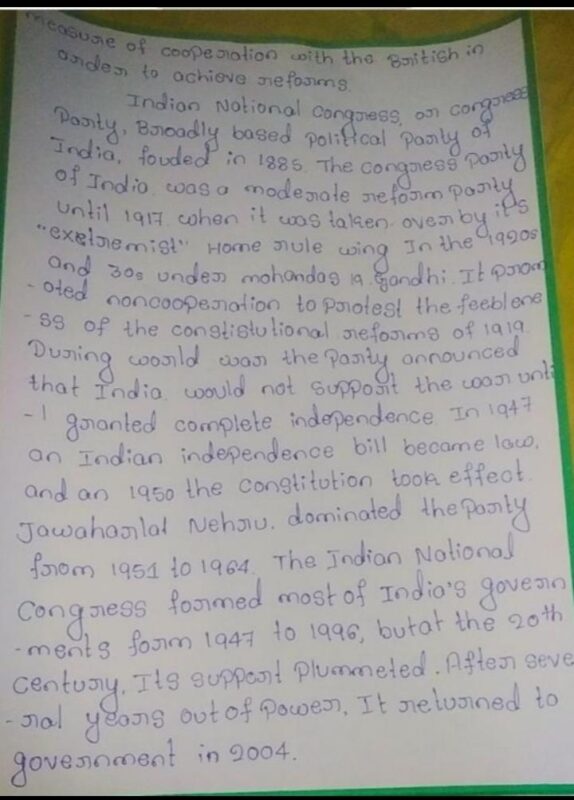 measure of cooperation with the British in
order to achieve reforms.
Indian National Congress, or congress
Party, Broadly based political party of
India, fouded in 1885. The congress party
of India. was a moderate reform party
until 1917 when it was taken over by it's
"exetremist" Home rule wing In the 1920s
and 30s under mohandas k. Gandhi. It prom
- oted noncooperation to protest the feeblene
- ss of the constistutional reforms of 1919.
During woorld war the party announced
that India would not support the war unti
- l granted complete independence. In 1947
an Indian independence bill became law,
and an 1950 the constitution took effect.
Jawaharlal Nehru. dominated the party
from 1951 to 1964. The Indian National
Congress formed most of India's govern
- ments form 1947 to 1996, but at the 20th
century, Its support plummeted. After seve
- ral years out of power, It returned to
government in 2004.